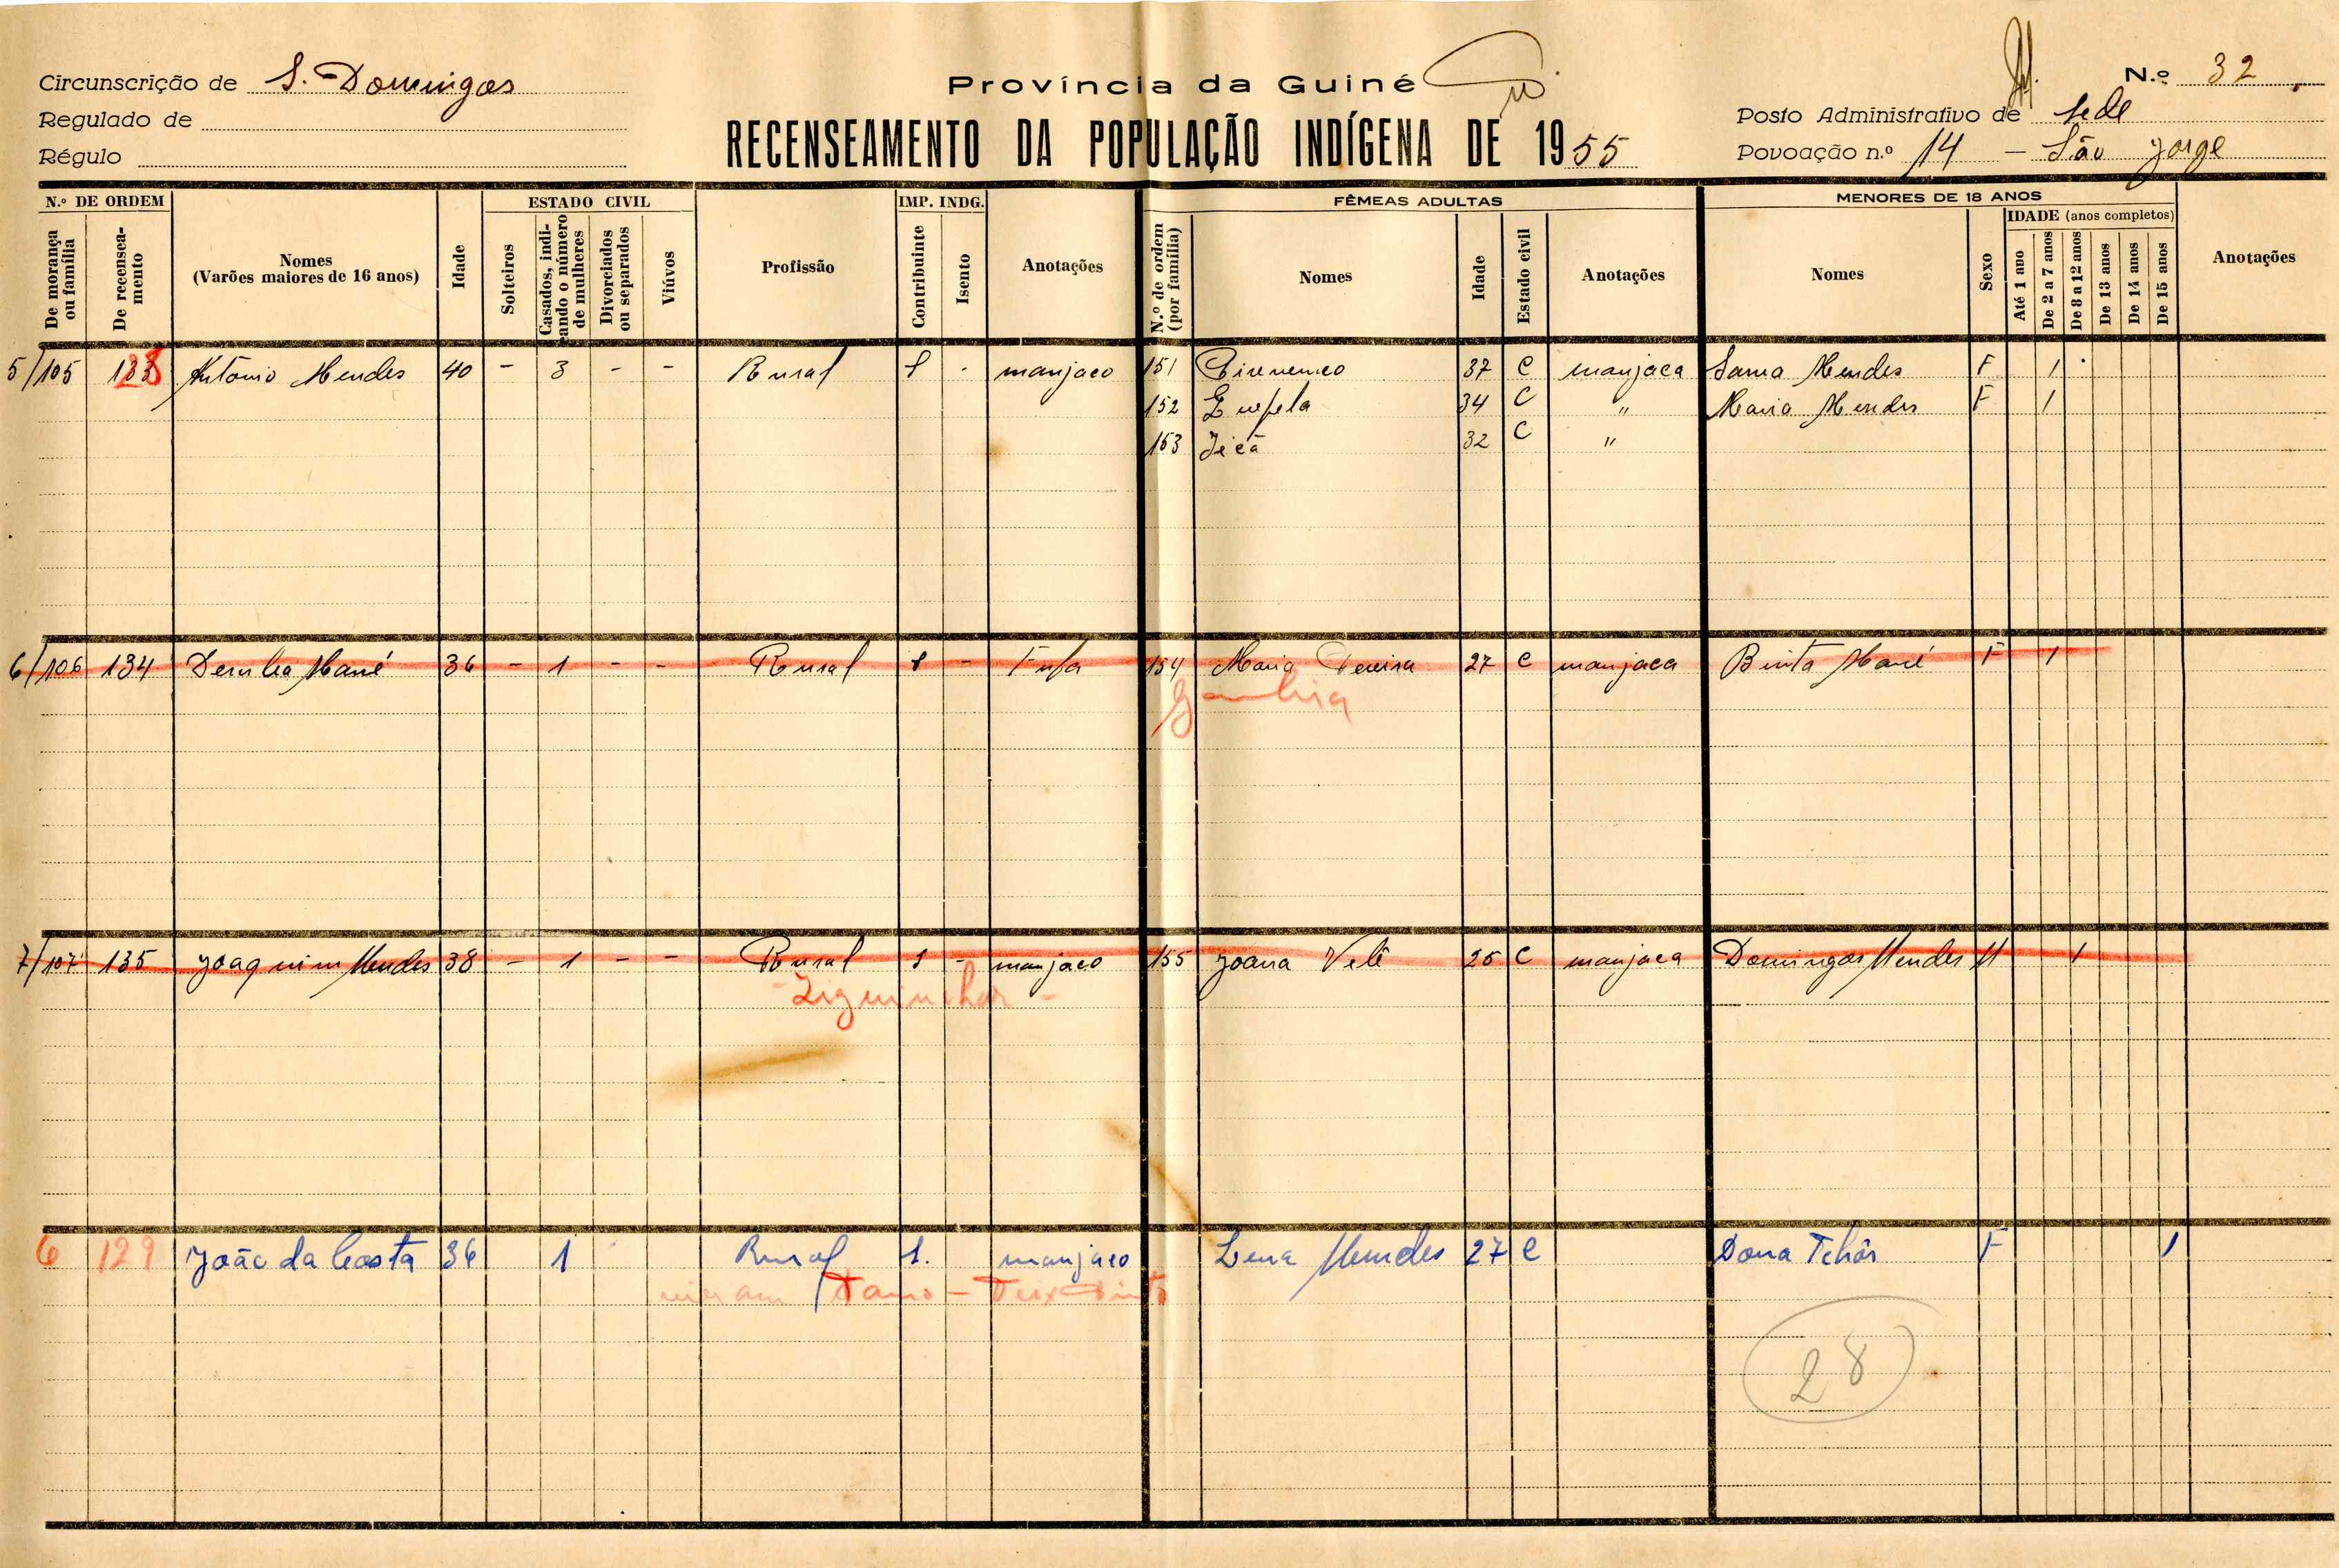 Circunscrição de S. Domingos
Regulado de
Régulo
Província da Guiné
RECENSEAMENTO DA POPULAÇÃO INDÍGENA DE 1955
N.º 32
Posto Administrativo de sede
Povoação n.º 14 - São Jorge
N.º DE ORDEM
De morança ou família
De recenseamento
Nomes
(Varões maiores de 16 anos)
Idade
ESTADO CIVIL
Solteiros
Casados, indicando o número de mulheres
Divorciados ou separados
Viúvos
Profissão
IMP. INDG.
Contribuinte
Isento
Anotações
FÊMEAS ADULTAS
N.º de ordem (por família)
Nomes
Idade
Estado civil
Anotações
MENORES DE 18 ANOS
Nomes
Sexo
IDADE (anos completos)
Até 1 ano
De 2 a 7 anos
De 8 a 12 anos
De 13 anos
De 14 anos
De 15 anos
Anotações
5/105 António Mendes 40 - 3 - - Rural 1 - manjaco 151 37 C manjaca Sama Mendes F 1
152 34 C " Maria Mendes F 1
153 32 C "
6/106 134 Demba Mané 36 - 1 - - Rural 1 - Fula 154 Maria Pereira 27 C manjaca Binta Mané F 1
Gambia
7/107 135 Joaquim Mendes 38 - 1 - - Rural 1 - manjaco 155 Joana Velê 25 C manjaca Domingos Mendes M 1
- Ziguinchor -
6 129 João da Costa 36 1 Rural 1. manjaco Lena Mendes 27 C Dona Tchôs F 1
28